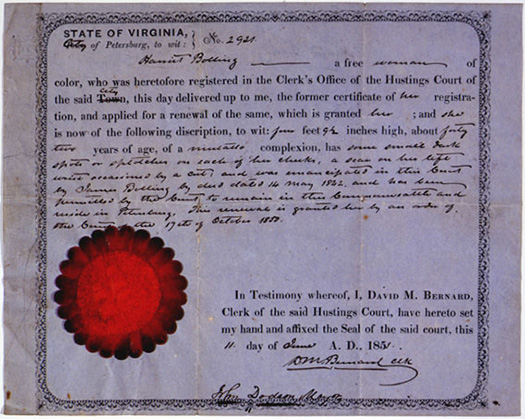 STATE OF VIRGINIA,
City of Petersburg, to wit: No. 2921
Harriet Bolling a free woman of
color, who was heretofore registered in the Clerk's Office of the Hustings Court of
the said Town, city this day delivered up to me, the former certificate of her registra-
tion, and applied for a renewal of the same, which is granted her ; and she
is now of the following discription, to wit: five feet 9½ inches high, about forty
two years of age, of a mulatto complexion, has some small dark
spots or splotches on each of her cheeks, a scar on her left
wrist occasioned by a cut; and was emancipated in this Court
by James Bolling by deed dated 14 May 1842, and has been
permitted by the Court to remain in this Commonwealth and
reside in Petersburg. This renewal is granted her by an order of
the Court the 17th of October 1850.
In Testimony whereof, I, DAVID M. BERNARD,
Clerk of the said Hustings Court, have hereto set
my hand and affixed the Seal of the said court, this
11 day of June A. D., 1851
D M Bernard clk